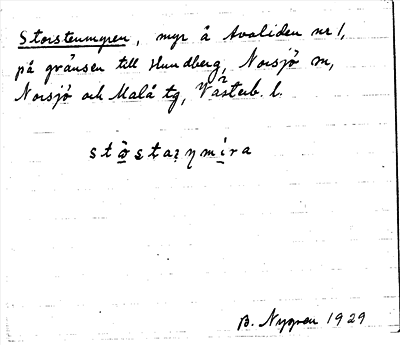 Storstenmyren, myr å Avaliden nr 1,
på gränsen till Hundberg, Norsjö sn,
Norsjö och Malå tg, Västerb. l.
stǫstaɳmi̱ra
B. Nygren 1929